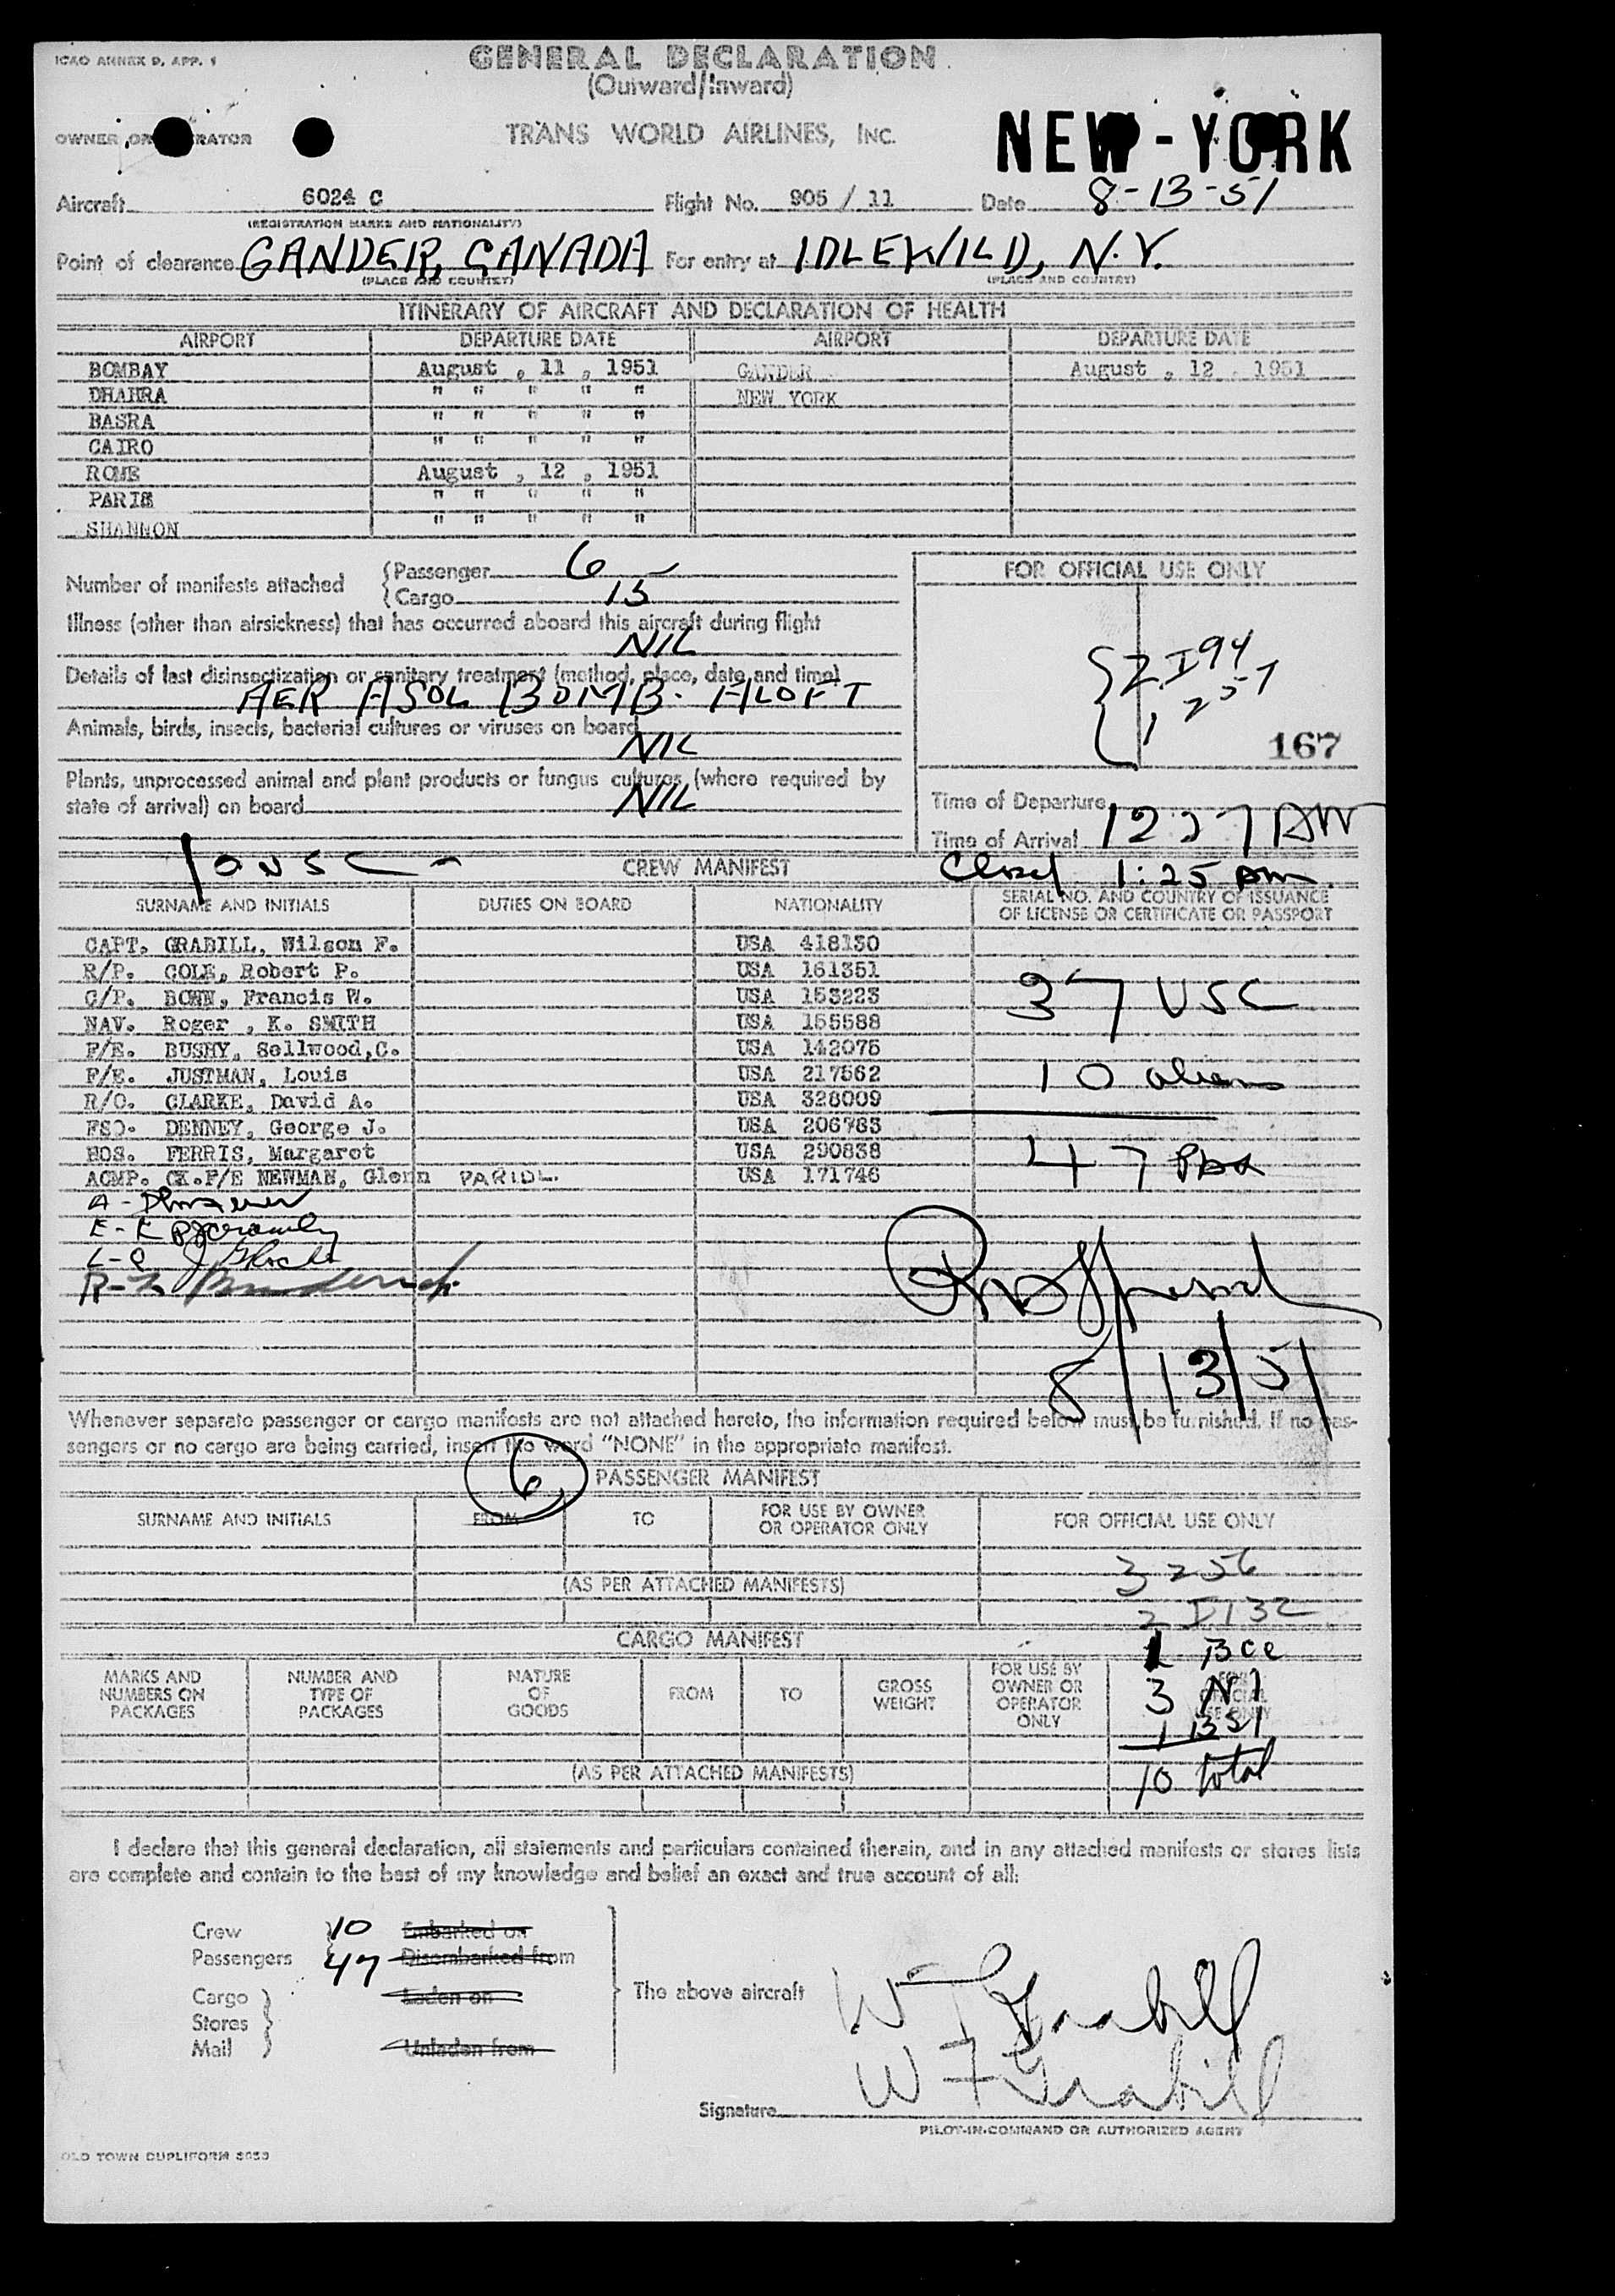 ICAO ANNEX 9, APP. 1
GENERAL DECLARATION
(Outward/Inward)
OWNER OR OPERATOR TRANS WORLD AIRLINES, INC.
NEW-YORK
Aircraft 6024 C Flight No. 905 / 11 Date 8-13-51
(REGISTRATION MARKS AND NATIONALITY)
Point of clearance GANDER, CANADA For entry at IDLEWILD, N.Y.
(PLACE AND COUNTRY) (PLACE AND COUNTRY)
ITINERARY OF AIRCRAFT AND DECLARATION OF HEALTH
AIRPORT DEPARTURE DATE AIRPORT DEPARTURE DATE
BOMBAY August , 11 , 1951 GANDER August , 12 , 1951
DHAHRA " " " " " NEW YORK
BASRA " " " " "
CAIRO " " " " "
ROME August , 12 , 1951
PARIS " " " " "
SHANNON " " " " "
Number of manifests attached
Passenger 6
Cargo 15
FOR OFFICIAL USE ONLY
Illness (other than airsickness) that has occurred aboard this aircraft during flight
NIL
Details of last disinsectization or sanitary treatment (method, place, date and time)
AER ASOL BOMB. ALOFT
Animals, birds, insects, bacterial cultures or viruses on board
NIL
167
Plants, unprocessed animal and plant products or fungus cultures, (where required by
state of arrival) on board NIL
Time of Departure
Time of Arrival 12 27 AM
10 USC
CREW MANIFEST
Closed 1:25 am.
SURNAME AND INITIALS DUTIES ON BOARD NATIONALITY SERIAL NO. AND COUNTRY OF ISSUANCE
OF LICENSE OR CERTIFICATE OR PASSPORT
CAPT. GRABILL, Wilson F. USA 418130
R/P. COLE, Robert P. USA 161351
C/P. BONN, Francis W. USA 153223
37 USC
NAV. Roger , K. SMITH USA 155588
F/E. BUSHY, Sellwood,C. USA 142075
F/E. JUSTMAN, Louis USA 217562
10 aliens
R/O. CLARKE, David A. USA 328009
FSO. DENNEY, George J. USA 206783
HOS. FERRIS, Margaret USA 290838
47 Pax
ACMP. CK.F/E NEWMAN, Glenn PARIDL. USA 171746
8/13/51
Whenever separate passenger or cargo manifests are not attached hereto, the information required below must be furnished. If no pas-
sengers or no cargo are being carried, insert the word "NONE" in the appropriate manifest.
6 PASSENGER MANIFEST
SURNAME AND INITIALS FROM TO FOR USE BY OWNER
OR OPERATOR ONLY FOR OFFICIAL USE ONLY
3 256
(AS PER ATTACHED MANIFESTS)
2 I132
CARGO MANIFEST
1 BCC
MARKS AND
NUMBERS ON
PACKAGES
NUMBER AND
TYPE OF
PACKAGES
NATURE
OF
GOODS
FROM
TO
GROSS
WEIGHT
FOR USE BY
OWNER OR
OPERATOR
ONLY
FOR
OFFICIAL
USE ONLY
3 N1
1 B51
10 total
(AS PER ATTACHED MANIFESTS)
I declare that this general declaration, all statements and particulars contained therein, and in any attached manifests or stores lists
are complete and contain to the best of my knowledge and belief an exact and true account of all:
Crew 10 Embarked on
Passengers 47 Disembarked from
Cargo Laden on
Stores
Mail Unladen from
The above aircraft
W F Grabill
W F Grabill
Signature
PILOT-IN-COMMAND OR AUTHORIZED AGENT
OLD TOWN DUPLIFORM 8053